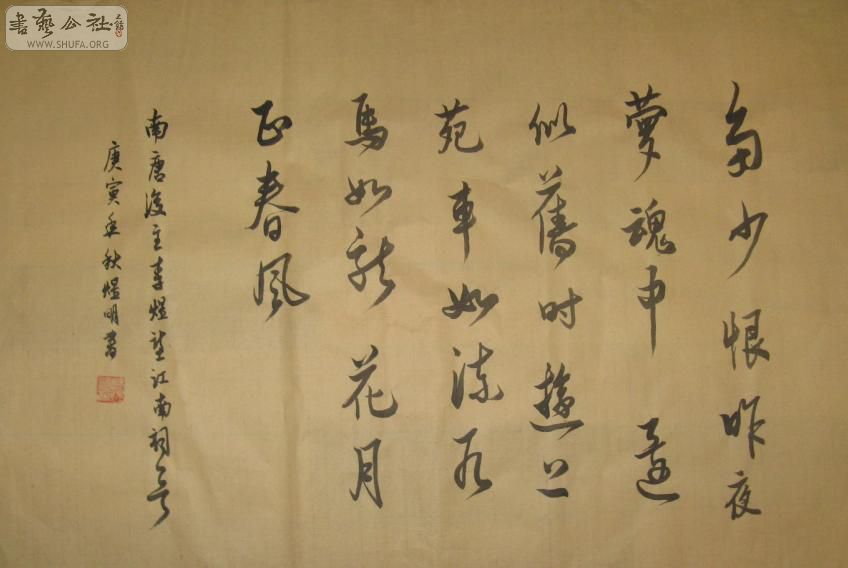 書藝公社
WWW.SHUFA.ORG
多少恨昨夜
夢魂中 還
似舊时遊上
苑車如流水
馬如龍 花月
正春風
南唐後主李煜望江南詞
庚寅年秋煜明書